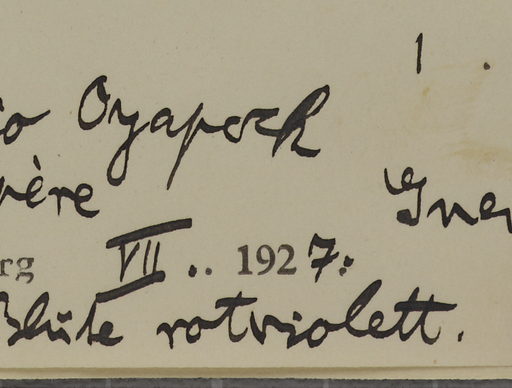 io Oyapock
père
rg VII.. 1927.
Blüte rotviolett.